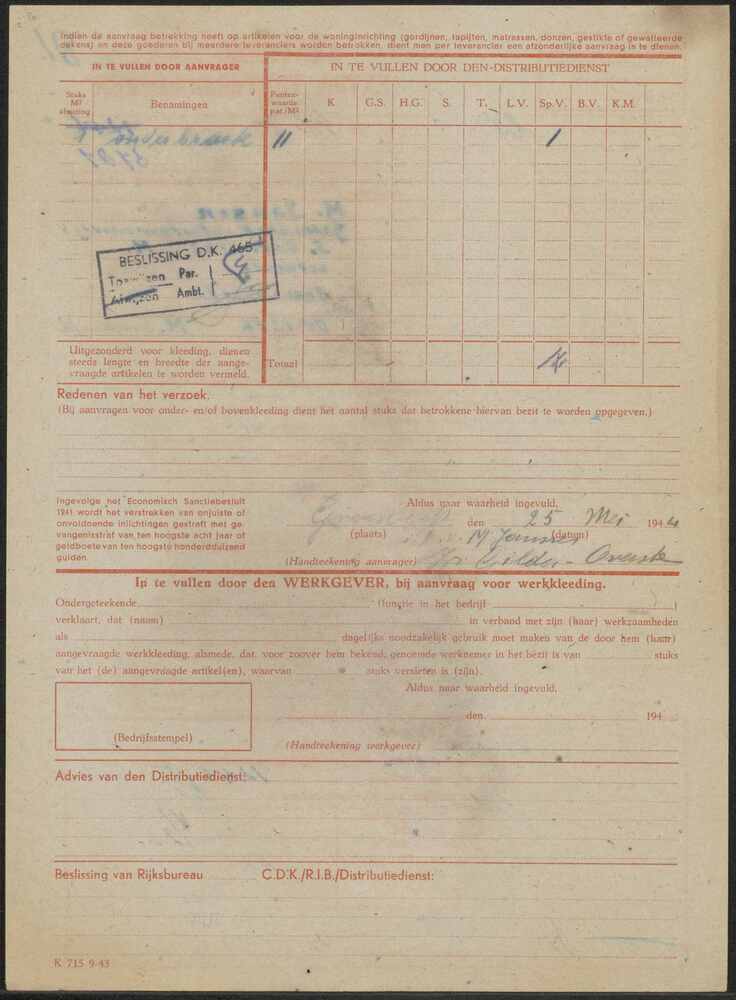 Indien de aanvraag betrekking heeft op artikelen voor de woninginrichting (gordijnen, tapijten, matrassen, donzen, gestikte of gewatteerde
dekens) en deze goederen bij meerdere leveranciers worden betrokken, dient men per leverancier een afzonderlijke aanvraag in te dienen.
IN TE VULLEN DOOR AANVRAGER
IN TE VULLEN DOOR DEN DISTRIBUTIEDIENST
Stuks
M²
Benamingen
Punten-
waarde
K G.S. H.G. S. T. L.V. Sp.V. B.V. K.M.
1 onderbroek 11 1
BESLISSING D.K. 465
Toewijzen Par.
Afwijzen Ambt.
Uitgezonderd voor kleeding, dienen
steeds lengte en breedte der aange-
vraagde artikelen te worden vermeld.
Totaal
Redenen van het verzoek.
(Bij aanvragen voor onder- en/of bovenkleeding dient het aantal stuks dat betrokkene hiervan bezit te worden opgegeven.)
Ingevolge het Economisch Sanctiebesluit
1941 wordt het verstrekken van onjuiste of
onvoldoende inlichtingen gestraft met ge-
vangenisstraf van ten hoogste acht jaar of
geldboete van ten hoogste honderdduizend
gulden.
Aldus naar waarheid ingevuld,
den 25 Mei 1944
(plaats) (datum)
M Jansen
(Handteekening aanvrager)
In te vullen door den WERKGEVER, bij aanvraag voor werkkleeding.
Ondergeteekende, (functie in het bedrijf )
verklaart, dat (naam) in verband met zijn (haar) werkzaamheden
als dagelijks noodzakelijk gebruik moet maken van de door hem (haar)
aangevraagde werkkleeding, alsmede, dat, voor zoover hem bekend, genoemde werknemer in het bezit is van stuks
van het (de) aangevraagde artikel(en), waarvan stuks versleten is (zijn).
Aldus naar waarheid ingevuld,
den 194
(Bedrijfsstempel)
(Handteekening werkgever)
Advies van den Distributiedienst:
Beslissing van Rijksbureau C.D.K./R.I.B./Distributiedienst:
K 715 9-43